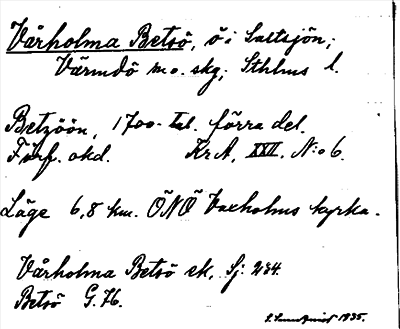 Vårholma Betsö, ö i Saltsjön;
Värmdö m.o. skg; Sthlms l.
Betzöön, 1700-tal. förra del.
Förf. okd. KrA, XXII, N:o 6.
Läge 6,8 km. ÖNÖ Vaxholms kyrka.
Vårholma Betsö ek, Sj: 234.
Betsö G.K.
1935.